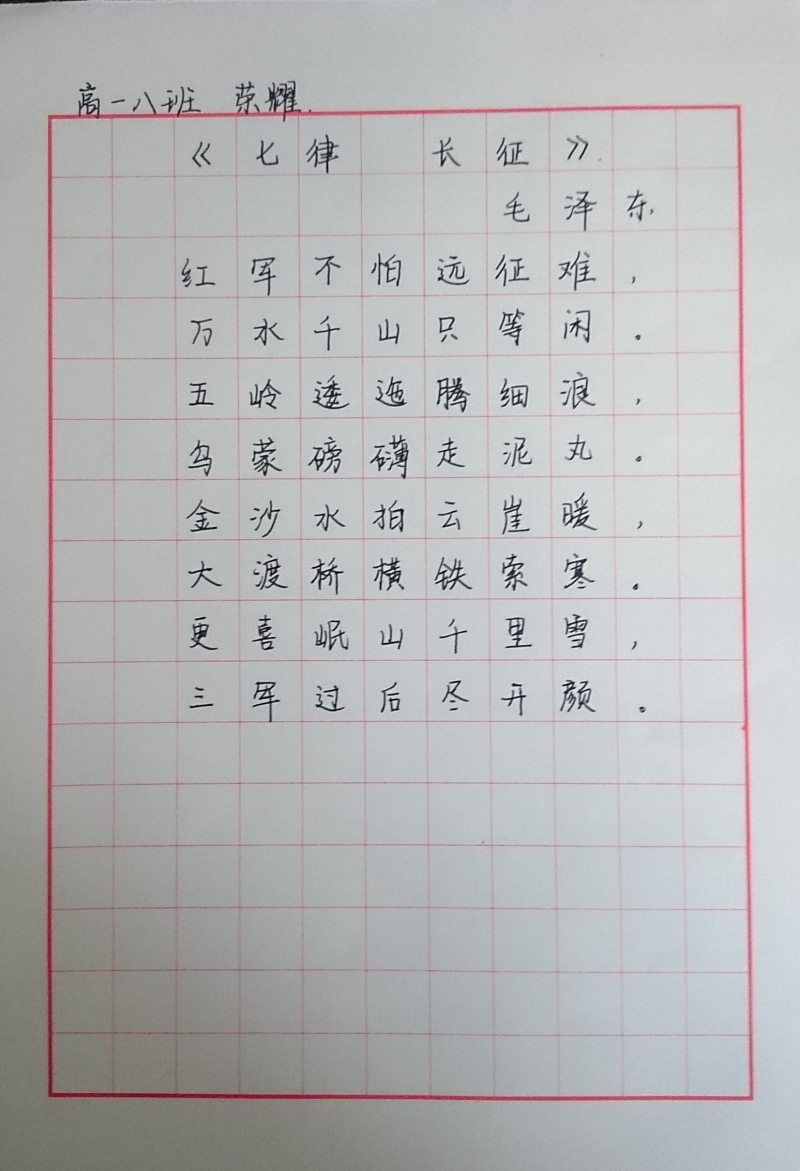 高一八班 荣耀.
《七律 长征》.
毛泽东
红军不怕远征难，
万水千山只等闲。
五岭逶迤腾细浪，
乌蒙磅礴走泥丸。
金沙水拍云崖暖，
大渡桥横铁索寒。
更喜岷山千里雪，
三军过后尽开颜。